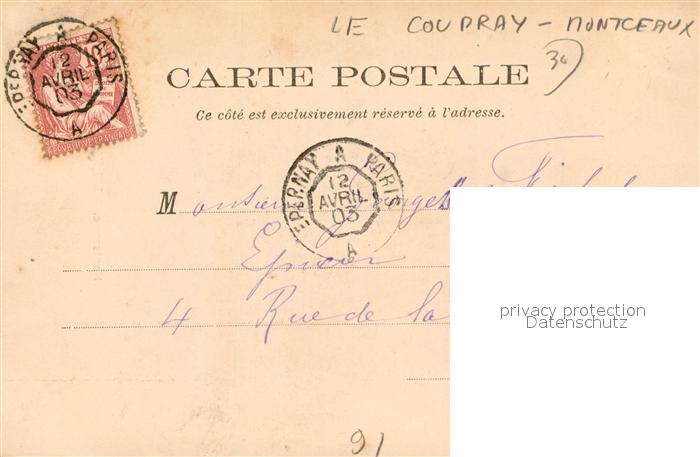 LE COUDRAY - MONTCEAUX
30
EPERNAY A PARIS
12
AVRIL
03
A
CARTE POSTALE
Ce côté est exclusivement réservé à l'adresse.
EPERNAY A PARIS
12
AVRIL
03
A
Monsieur
Epicier
4 Rue de la
privacy protection
Datenschutz
91